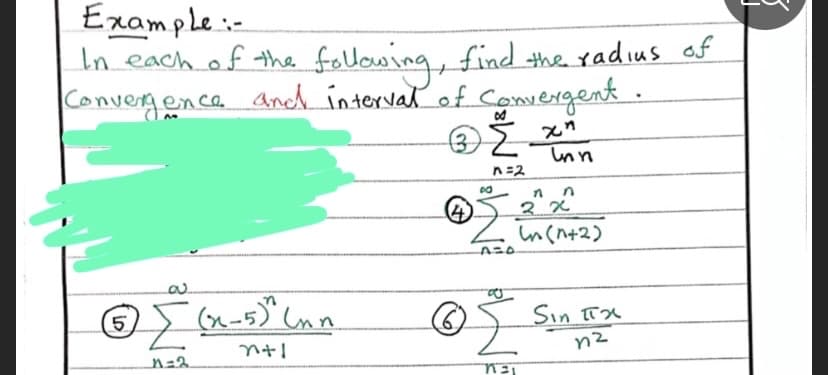 Example :-
In each of the following, find the radius of
Convergence and interval of Convergent .
③ ∞ Σ n=2 xⁿ / ln n
④ ∞ Σ n=0 2ⁿ xⁿ / ln(n+2)
⑤ ∞ Σ n=2 (x-5)ⁿ ln n / n+1
⑥ ∞ Σ n=1 Sin πx / n²